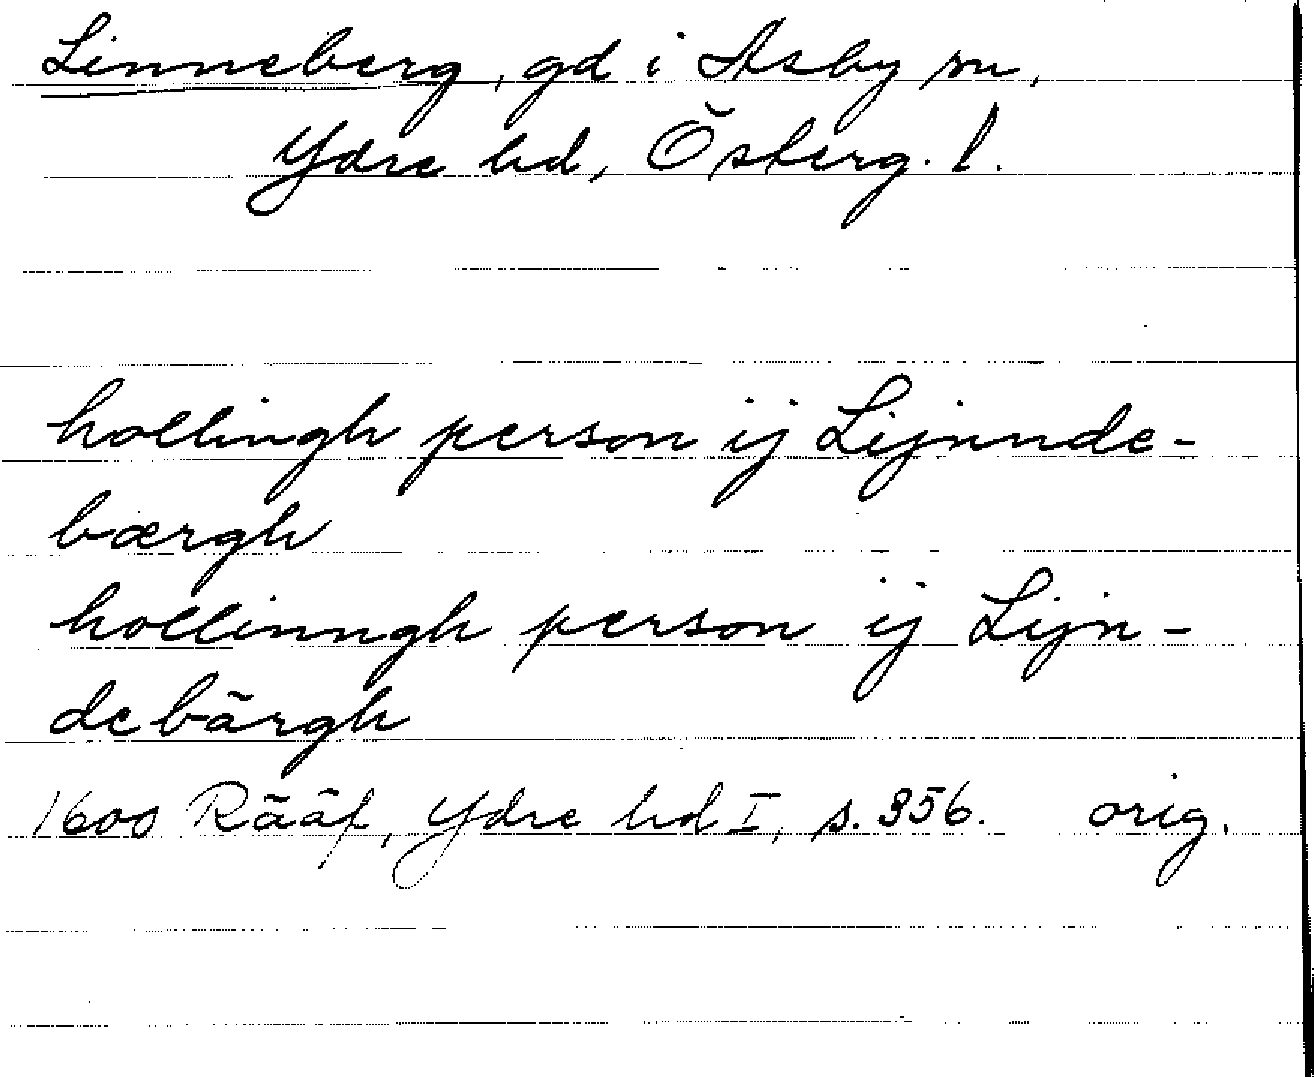 Linneberg, gd i Asby sn,
Ydre hd, Österg. l.
hollingh person ij Lijnnde-
bærgh
hollinngh person ij Lijn-
debärgh
1600 Rääf, Ydre hd I, s. 356. orig.